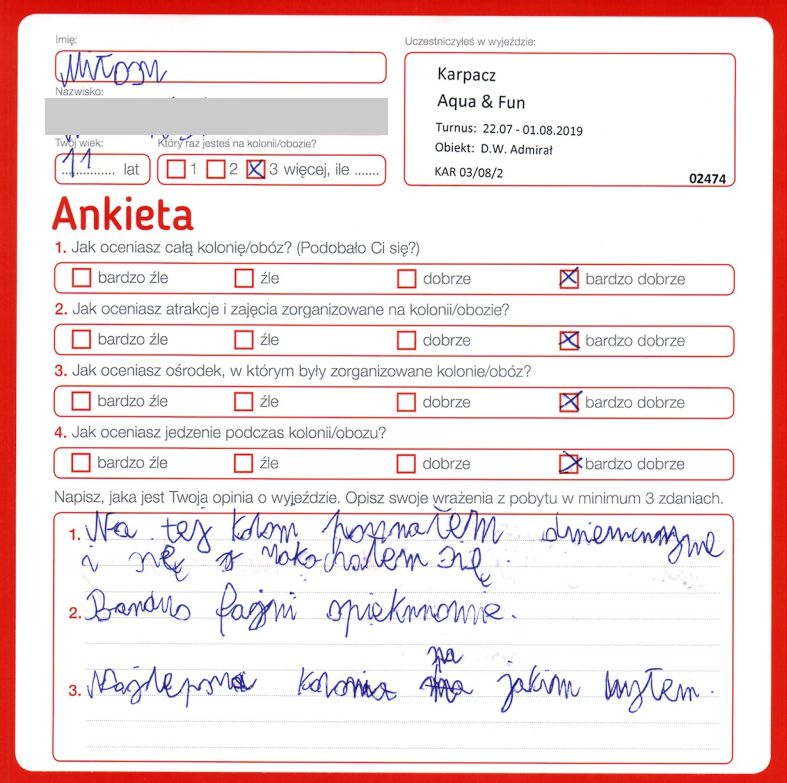 Imię:
Miłosz
Nazwisko:
Twój wiek:
11 lat
Który raz jesteś na kolonii/obozie?
1 2 3 więcej, ile .......
Uczestniczyłeś w wyjeździe:
Karpacz
Aqua & Fun
Turnus: 22.07 - 01.08.2019
Obiekt: D.W. Admirał
KAR 03/08/2
02474
Ankieta
1. Jak oceniasz całą kolonię/obóz? (Podobało Ci się?)
bardzo źle źle dobrze bardzo dobrze
2. Jak oceniasz atrakcje i zajęcia zorganizowane na kolonii/obozie?
bardzo źle źle dobrze bardzo dobrze
3. Jak oceniasz ośrodek, w którym były zorganizowane kolonie/obóz?
bardzo źle źle dobrze bardzo dobrze
4. Jak oceniasz jedzenie podczas kolonii/obozu?
bardzo źle źle dobrze bardzo dobrze
Napisz, jaka jest Twoja opinia o wyjeździe. Opisz swoje wrażenia z pobytu w minimum 3 zdaniach.
1. Na tej koloni poznałem dziewczynę
i się zakochałem się.
2. Bardzo fajni opiekunowie.
3. Najlepsza kolonia na jakim byłem.